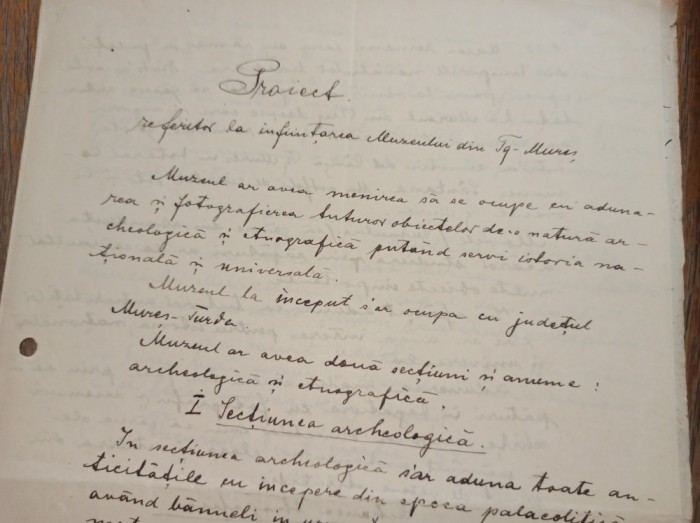 Proiect.
referitor la infiintarea Muzeului din Tg-Mureș
Muzeul ar avea menirea sa se ocupe cu aduna-
rea și fotografierea tuturor obiectelor de o natură ar-
cheologică și etnografică putând servi istoria na-
țională și universală.
Muzeul la început s'ar ocupa cu județul
Mureș-Turda.
Muzeul ar avea două secțiuni și anume:
archeologică și etnografică.
I Secțiunea archeologică.
In secțiunea archeologică s'ar aduna toate an-
ticitățile cu incepere din epoca palaeolitică
având